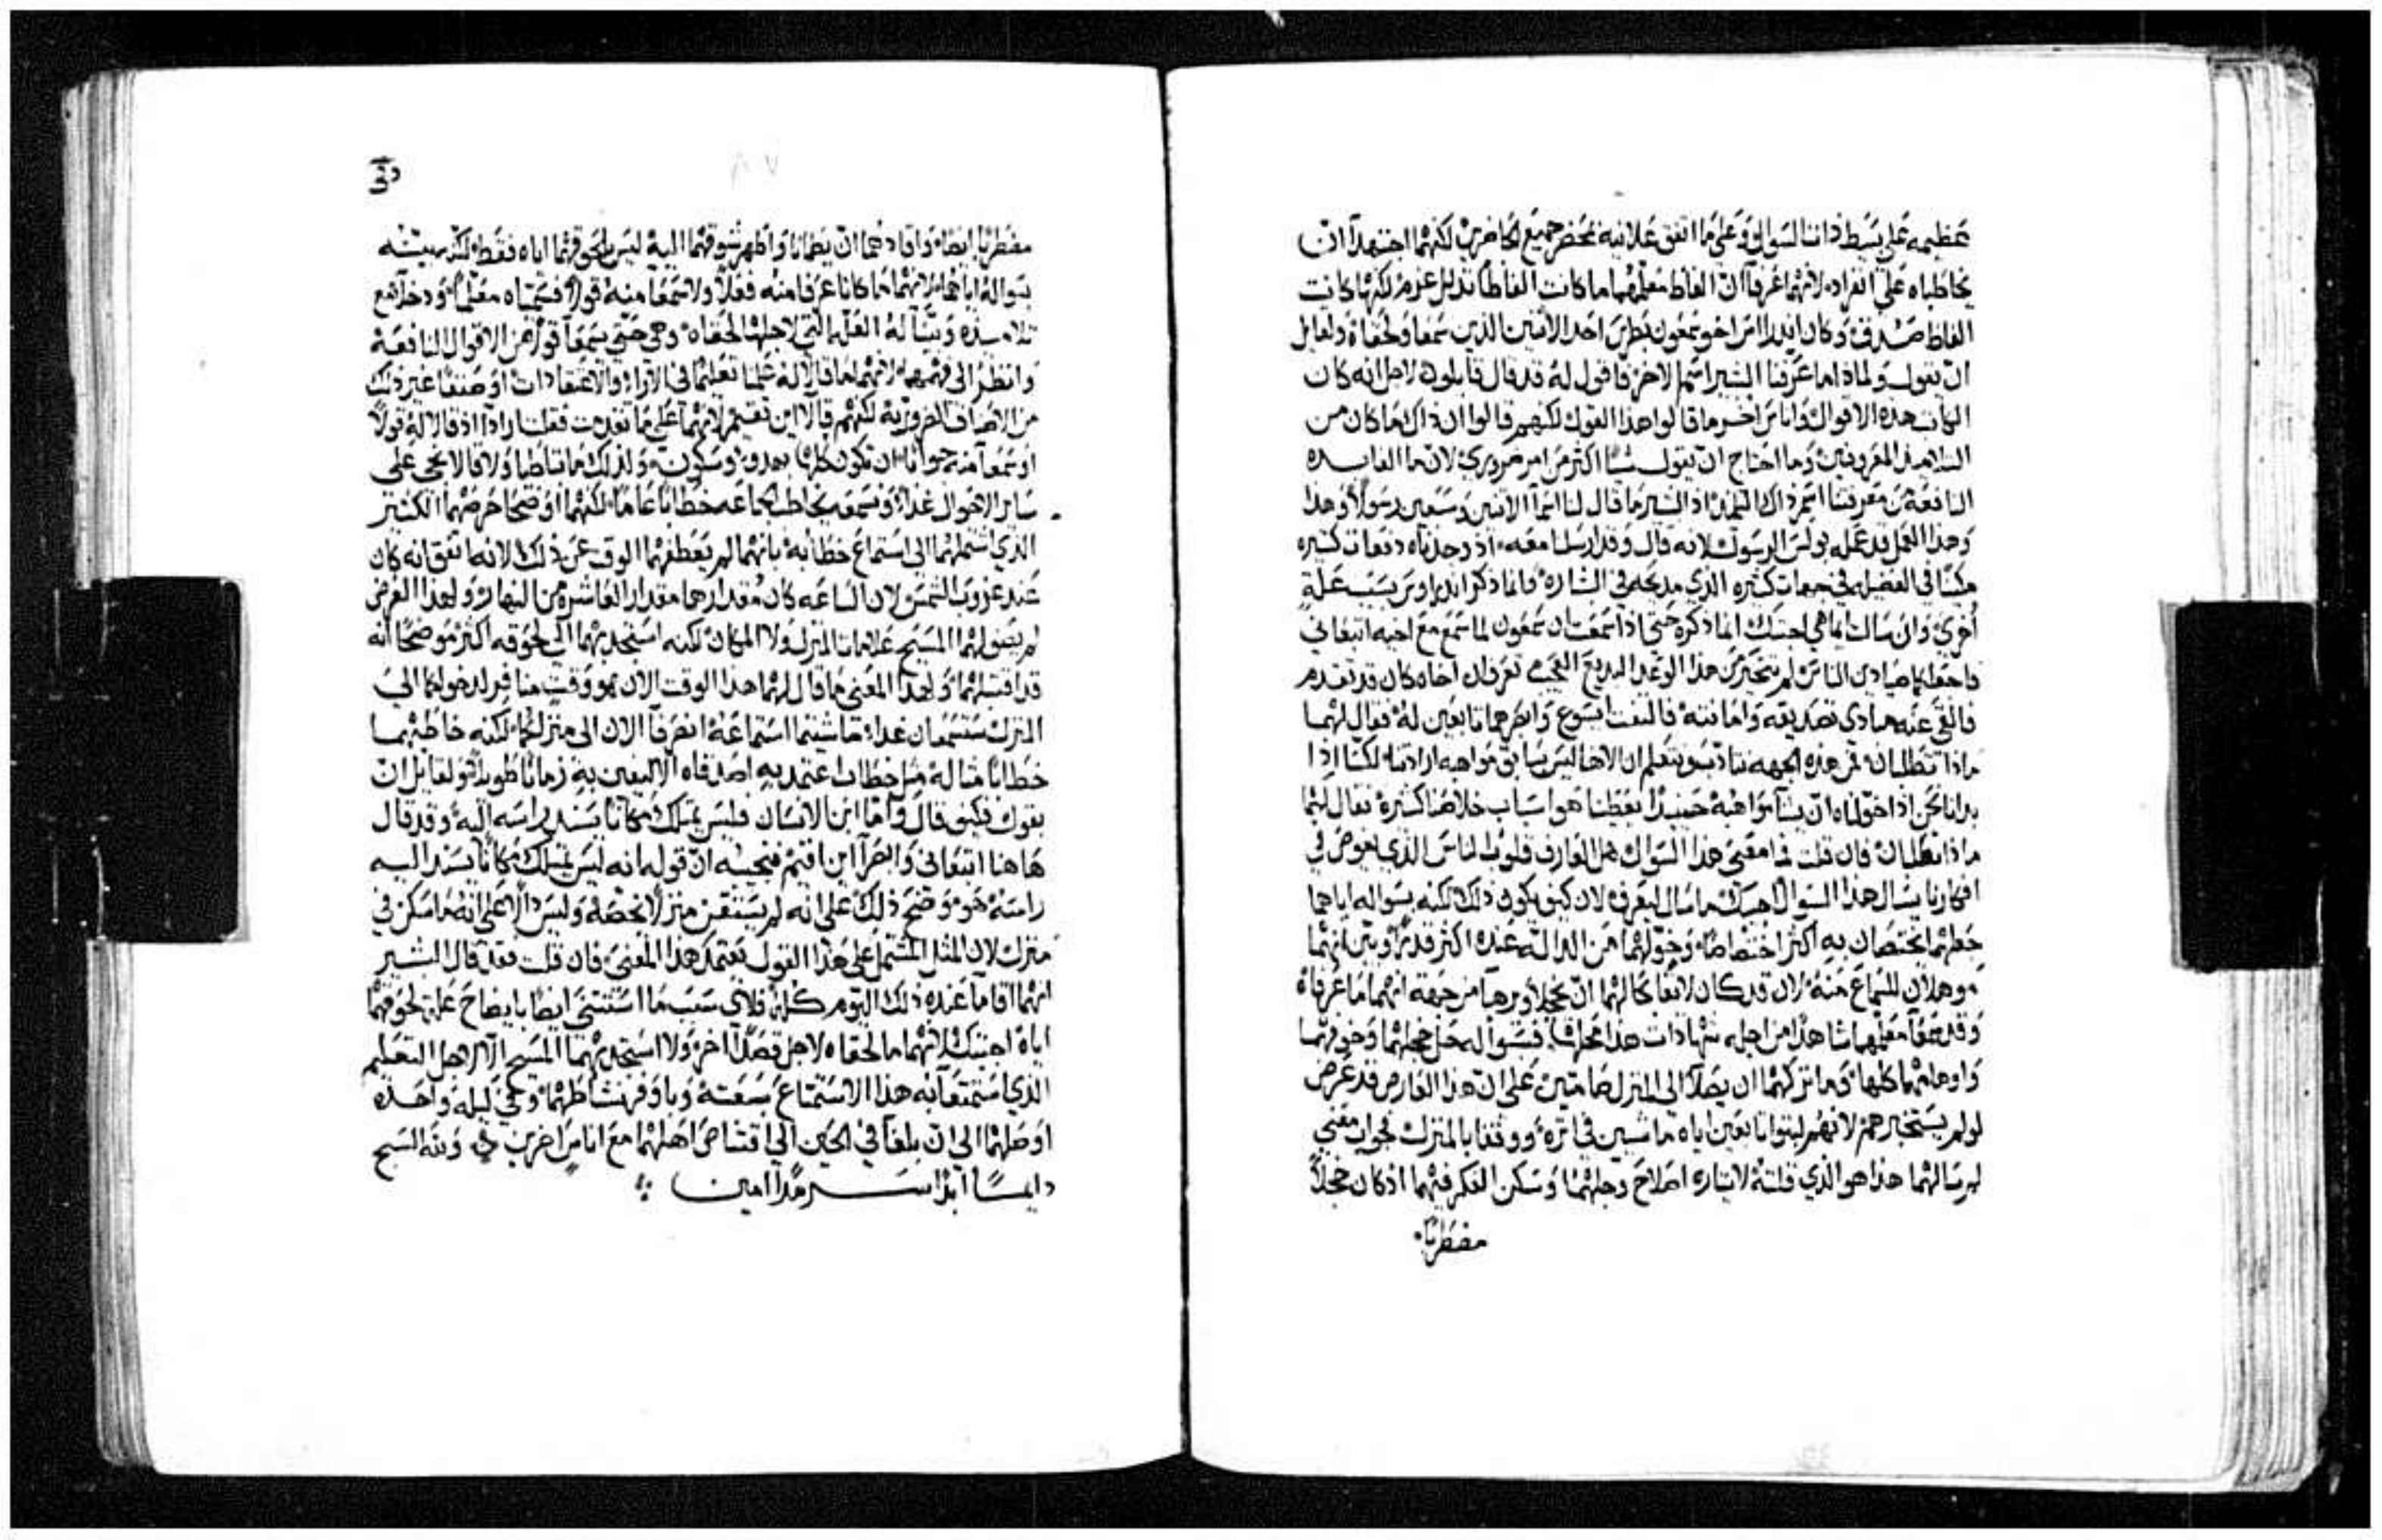 عظيمه على بسط ذاتنا السوال وعلى ما اتفق علانيه بمحضر جميع الحاضرين لكنهما اجتهدا ان
يخاطباه على انفراده لانهما عرفا ان الفاظ معلمهما ما كانت الفاظا تدلل عزم لكنها كانت
الفاظ صدق وكان اندراس اخو سمعون بطرس احد الاثنين الذين سمعا ولحقاه ولقايل
ان يقول ولماذا ما عرفنا البشير اسم الاخر فاقول له قد قال قايلون لاجل انه كان
الكاتب هذه الاقوال واناس اخر ما قالوا هذا القول لكنهم قالوا ان ذاك ما كان من
التلاميذ المعروفين وما احتاج ان يقول شيا اكثر من امر ضروري لان ما الفايده
النافعة من معرفتنا اسم ذاك التلميذ اذ البشير ما قال لنا اسما الاثنين وسبعين رسولا وهذا
وهذا العمل قد عمله بولس الرسول لانه قال وقد ارسلنا معه اذ وجدناه دفعات كثيره
مكينا في الفضيله في جهات كثيره الذي مدحه في البشاره فانما ذكر اندراوس بسبب علة
اخرى وان سالت ايما هي اجبتك انما ذكره حتى اذا سمعت ان سمعون لما سمع مع اخيه اتبعاني
فاجعلكما صيادي الناس لم يتحير من هذا الوعد البديع العجب تعرف ان اخاه كان قد تقدم
فالقى عنه مبادي تصديقه وامانته فالتفت ايسوع وابصرهما تابعين له فقال لهما
ماذا تطلبان فمن هذه الجهه نتادب ونتعلم ان الاهنا ليس يسابق مواهبه ارادتنا لكننا اذا
بدانا نحن اذا خولناه ان نشا مواهبه حينيذ يعطينا هو اسباب خلاصنا كثيرة فقال لهما
ماذا تطلبان فان قلت فما معنى هذا السوال هل العارف قلوب الناس الذي يغوص في
افكارنا يسال هذا السوال اجبتك ما سال ليعرف لان كيف يكون ذلك لكنه بسواله اياهما
جعلهما يختصان به اكثر اختصاصا وخولهما من الدالة عنده اكثر قدرا وبين انهما
موهلان للسماع منه لان قد كان لايقا بحالهما ان يخجلا ويرهبا من جهة انهما ما عرفاه
وقد سمعا معلمهما شاهدا من اجله شهادات هذا محلها فبسواله حل خجلهما وخوفهما
واوهامهما كلها وما تركهما ان يصلا الى المنزل صامتين على ان هذا العارض قد عرض
لو لم يستخبرهم لانهم لبثوا تابعين اياه ماشيين في اثره ووقفا بالمنزل نحوان معنى
لم سالهما هذا هو الذي قلته لايثاره اصلاح وجلهما وسكن الفكر فيهما اذ كان خجلا
مضطربا
مضطربا ايضا وافادهما ان يطمانا واظهر شوقهما اليه ليس بلحوقهما اياه فقط لكنه يبينه
بسواله اياهما لانهما ما كانا عرفا منه فعلا ولا سمعا منه قولا فسمياه معلما ودخلا مع
تلاميذه وبينا له العلة التي لاجلها لحقاه وهي حتى يسمعا قولا من الاقوال النافعة
وانظر الى فهمهما لانهما ما قالا له علمنا تعليما في الاراء والاعتقادات او صنفا غير ذلك
من الاصناف الضروريه لكنهم قالا اين تقيم لانهما على ما تقدمت فقلت ارادا اذ قالا له قولا
او سمعا منه جوابا ان تكون كلها بهدوء وسكون ولذلك ما تباطيا ولا قالا نجي على
ساير الاحوال غدا ونسمعه يخاطب الجماعه خطابا عاما لكنهما اوضحا حرصهما الكثير
الذي اشتملهما الى استماع خطابه بانهما لم يعطفهما الوقت عن ذلك لانه اتفق انه كان
عند غروب الشمس لان الساعه كان مقدارها مقدار العاشره من النهار ولهذا الغرض
لم يقول لهما المسيح علامات المنزل ولا المكان لكنه استجذبهما الى لحوقه اكثر موضحا انه
قد اقتبلهما ولهذا المعنى ما قال لهما هذا الوقت الان هو وقت منافر لدخولكما الى
المنزل ستسمعان غدا ما شيتما استماعه انصرفا الان الى منزلكما لكنه خاطبهما
خطابا مثاله مثل خطاب اعتمد به اصدقاه الاليفين به زمانا طويلا ولقايل ان
يقول فكيف قال واما ابن الانسان فليس يمتلك مكانا يسند راسه اليه وقد قال
هاهنا اتبعاني وابصرا اين اقيم فنجيبه ان قوله انه ليس يمتلك مكانا يسند اليه
راسه هو موضح ذلك على انه لم يستقن منزلا يخصه وليس دالا على انه ما سكن في
منزل لان المثل المشتمل على هذا القول يعتمد هذا المعنى فان قلت فقد قال البشير
انهما اقاما عنده ذلك اليوم كله فلاي سبب ما استثنى ايضا بايضاح علة لحوقهما
اياه اجبتك لانهما ما لحقاه لاجل قصد اخر ولا استجذبهما المسيح الا لاجل التعليم
الذي استمتعا به هذا الاستمتاع بسعته وباوفر نشاطهما وفي ليله واحده
اوصلهما الى ان بلغا في الحين الى اقتناص اهلهما مع اناس اخرين ولله السبح
دايما ابدا سرمدا امين